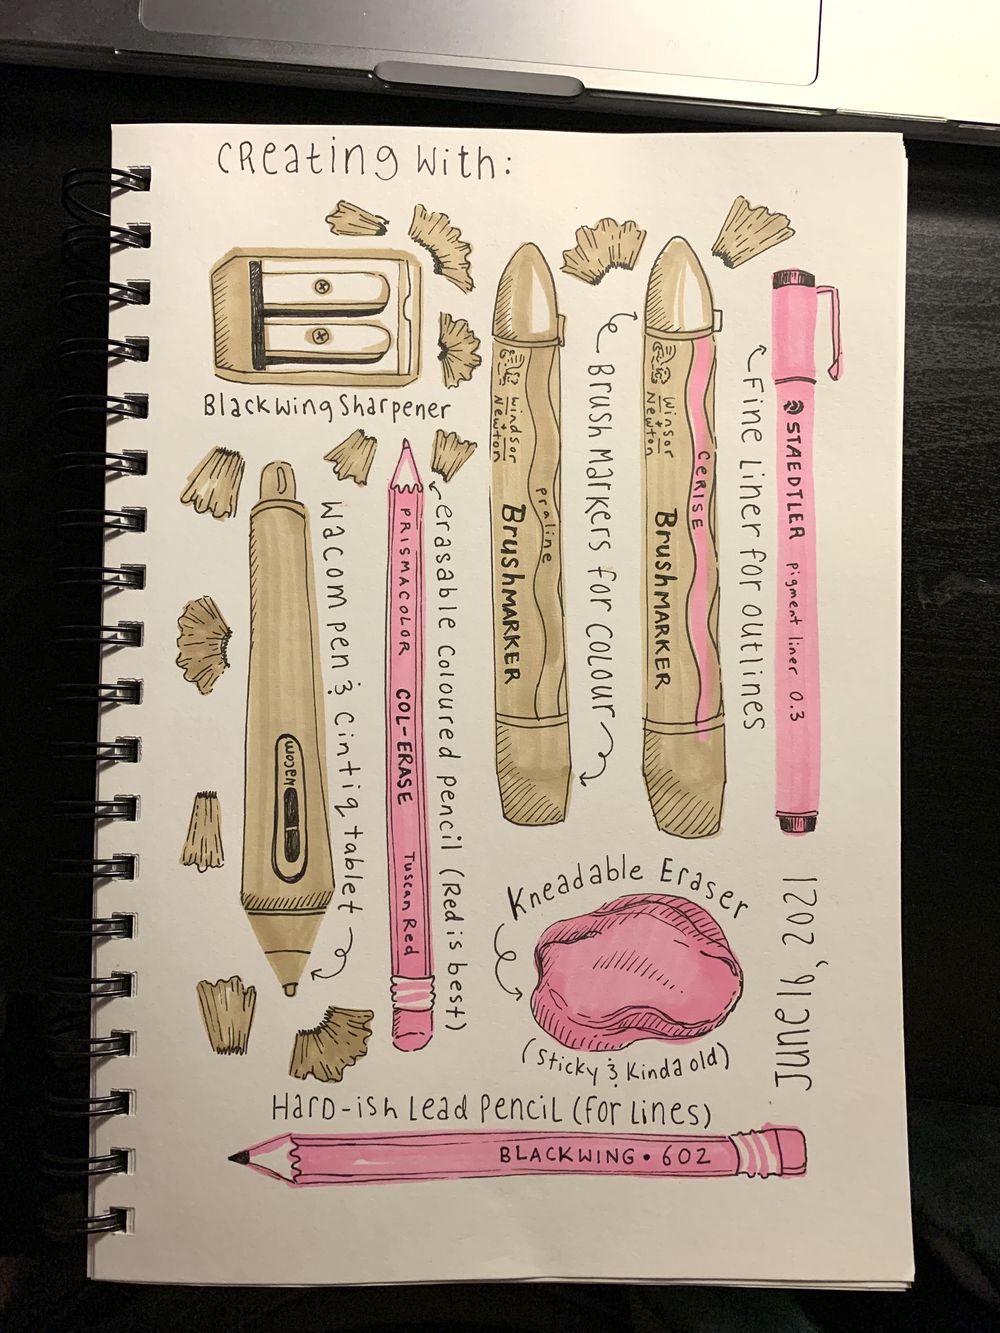 Creating With:
Blackwing Sharpener
Wacom pen & Cintiq tablet
wacom
Erasable Coloured pencil (Red is best)
PRISMACOLOR COL-ERASE Tuscan Red
Windsor + Newton
praline
BrushMARKER
Brush Markers for Colour
Winsor + Newton
CERISE
BrushMARKER
Fine Liner for outlines
STAEDTLER pigment liner 0.3
Kneadable Eraser
(Sticky & Kinda old)
June 19, 2021
Hard-ish Lead Pencil (for lines)
BLACKWING • 602